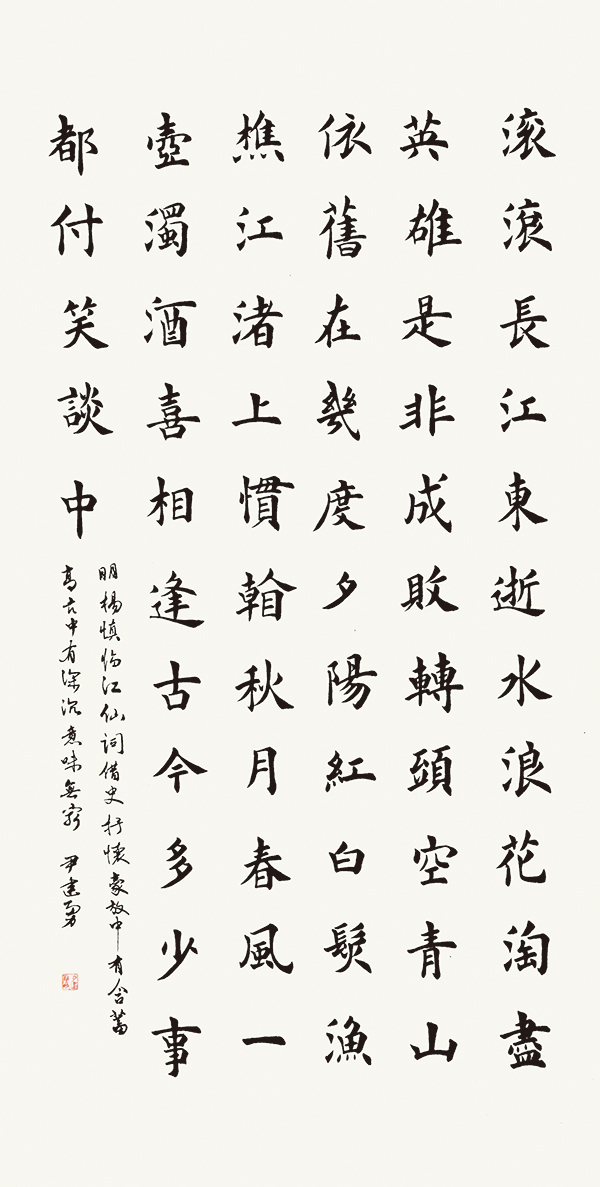 滚滚長江東逝水浪花淘盡
英雄是非成敗轉頭空青山
依舊在幾度夕陽紅白髮漁
樵江渚上慣看秋月春風一
壺濁酒喜相逢古今多少事
都付笑談中
明楊慎临江仙詞借史抒懷豪放中有含蓄
高古中有深沉意味無窮 尹建勇